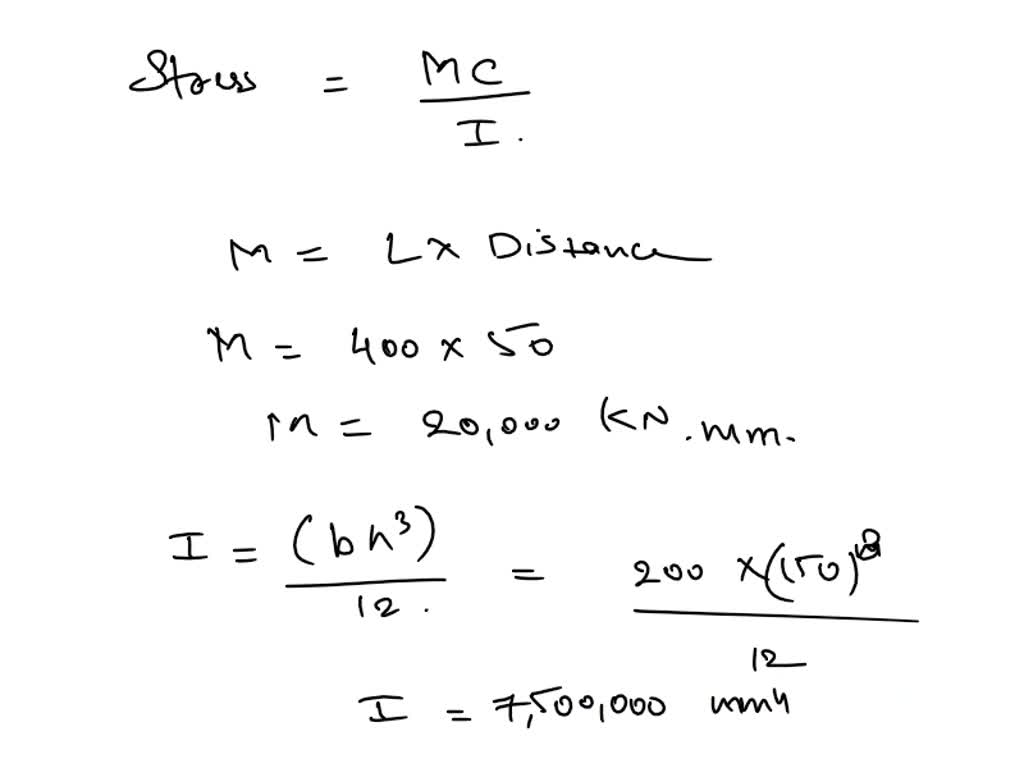 Stress = MC / I.
M = L x Distance
M = 400 x 50
M = 20,000 KN.mm.
I = (bh³) / 12. = 200 x (150)³ / 12
I = 7,500,000 mm4